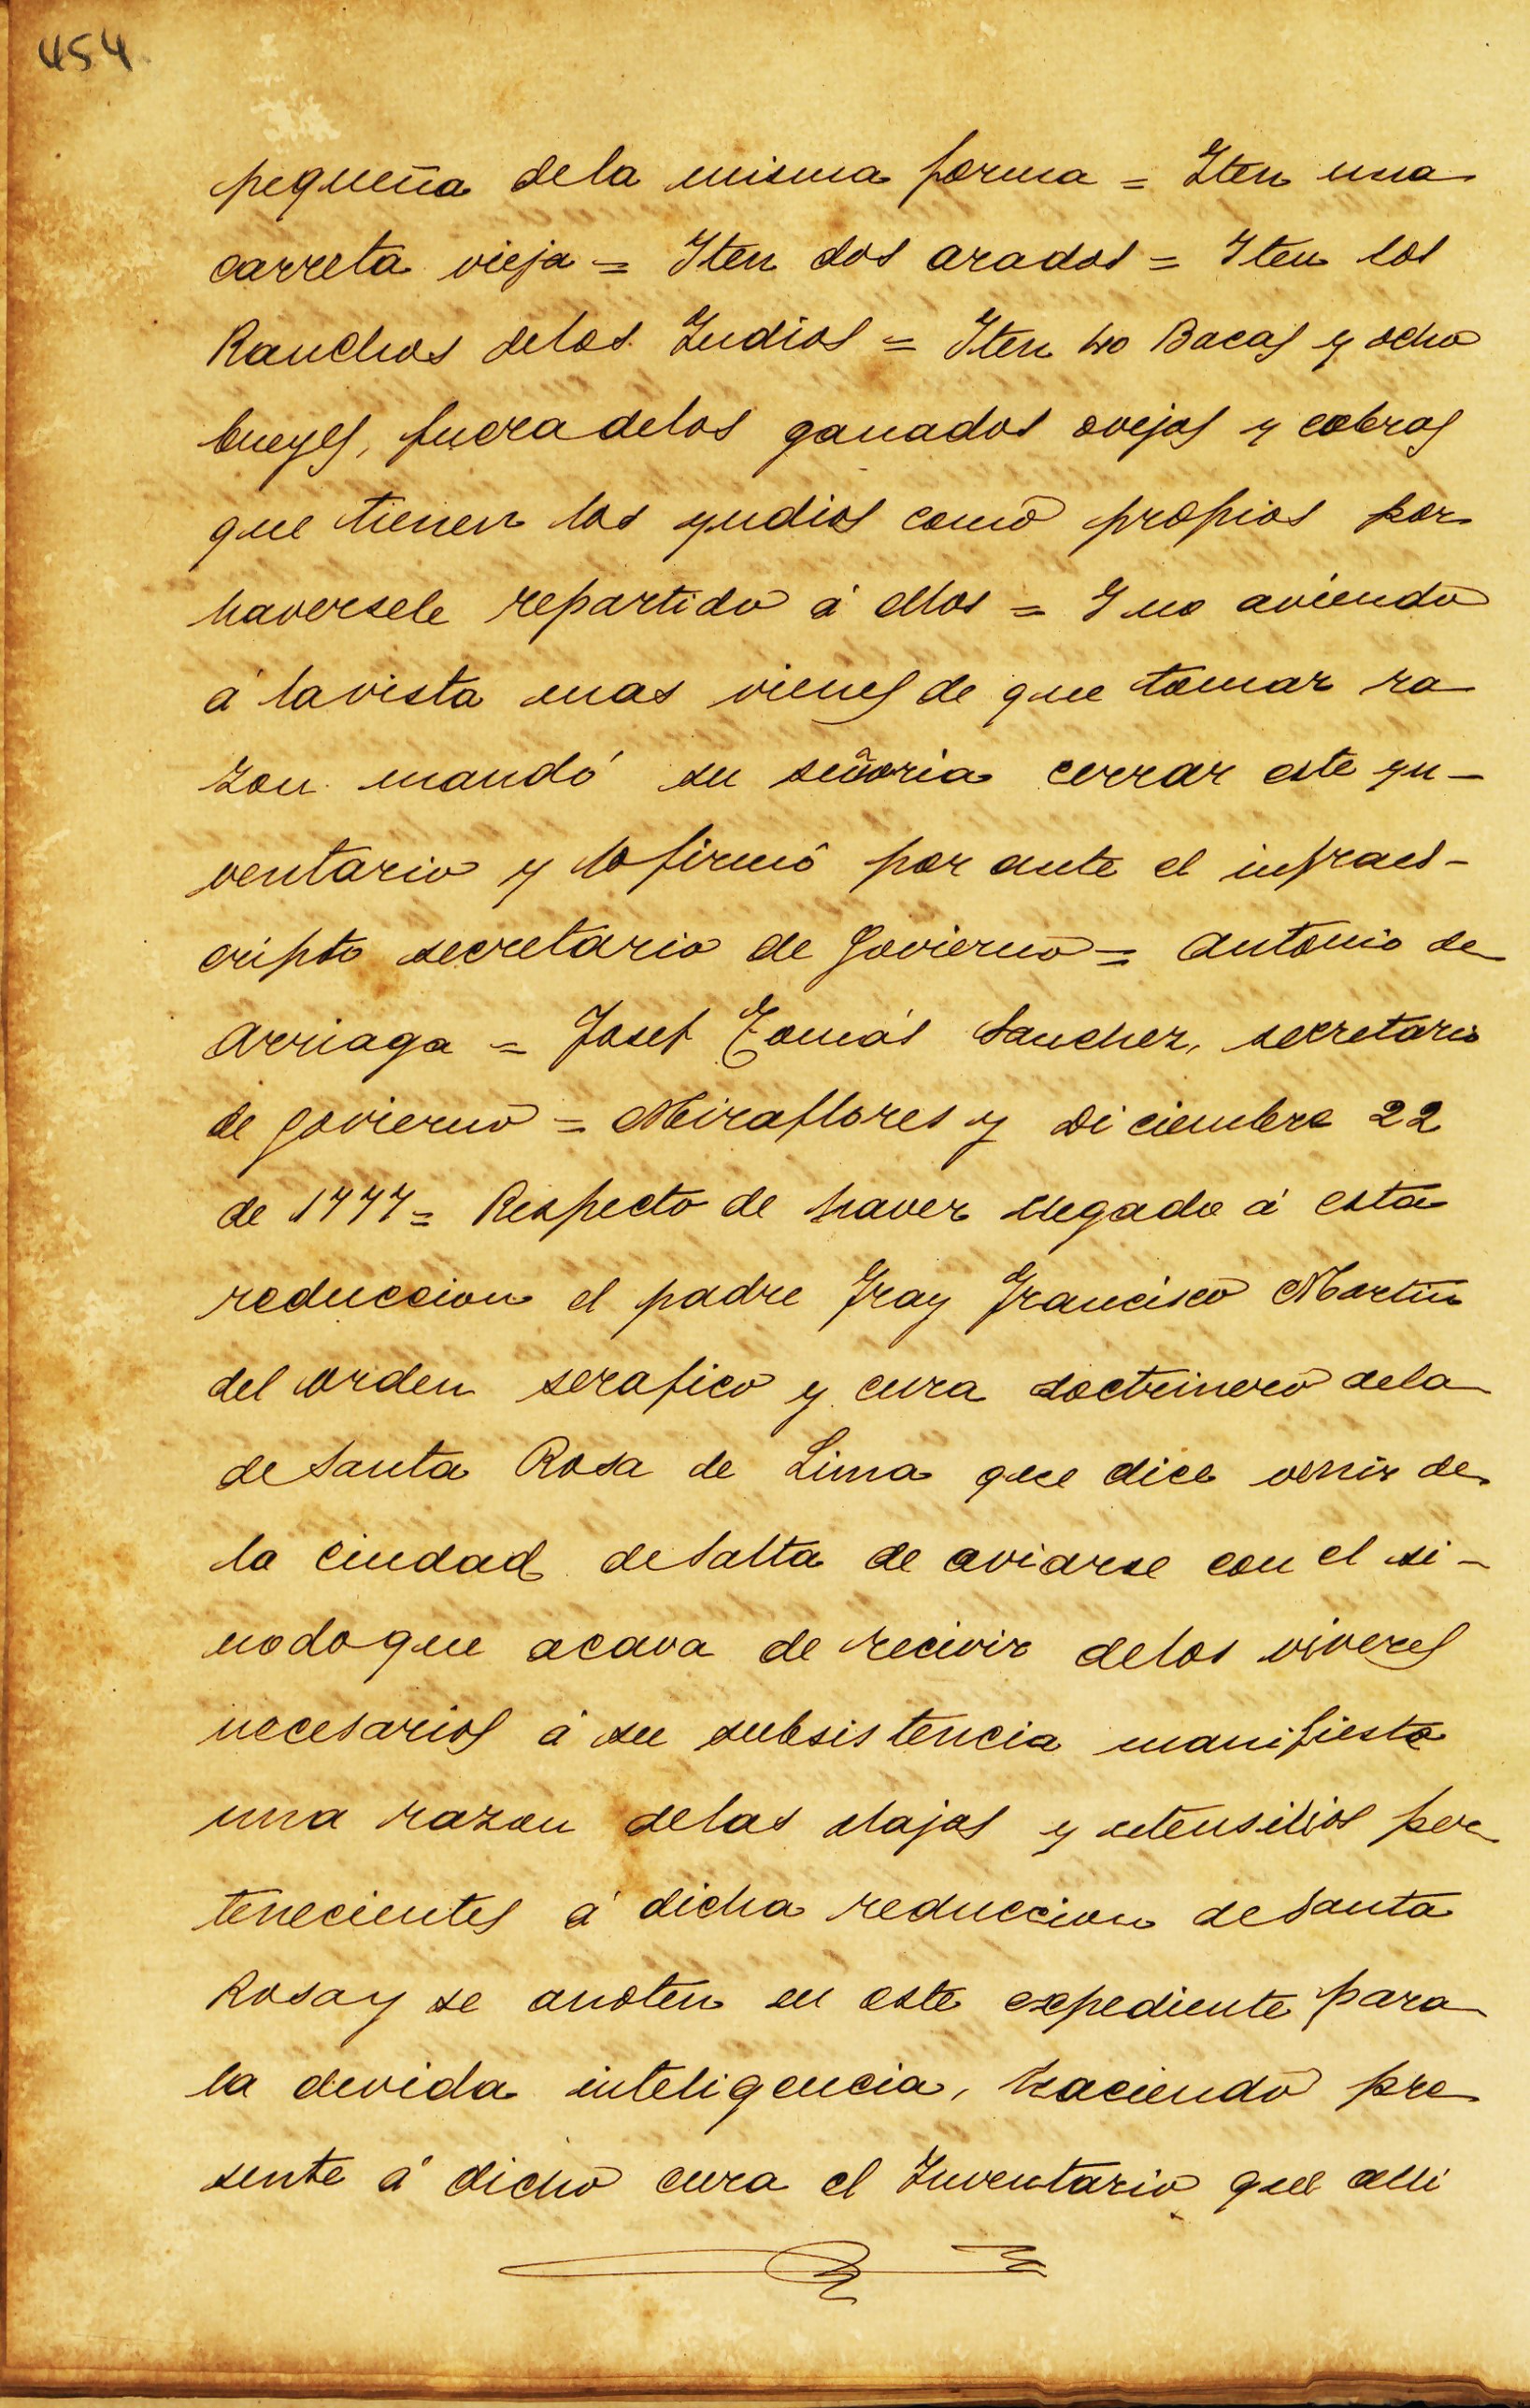 454
pequeña dela misma forma = Iten una
carreta vieja = Iten dos arados = Iten los
Ranchos delos Indios = Iten Bacas y ocho
bueyes, fuera delos ganados ovejas y cabras
que tienen los yndios como propios por
haversele repartido á ellos = Y no aviendo
á lavista mas vienes de que tomar ra
zon mandó su señoria cerrar este yn-
ventario y lo firmó por ante el infraes-
cripto secretario de Govierno = Antonio de
Arriaga = Josef Tomás Sanchez, secretario
de govierno = Miraflores y Diciembre 22
de 1777 = Respecto de haver llegado á esta
reduccion el padre Fray Francisco Martin
del orden serafico y cura doctrinero dela
de Santa Rosa de Lima que dice venir de
la ciudad de Salta de aviarse con el si-
nodo que acava de recivir delos viveres
necesarios á su subsistencia manifieste
una razon delas alajas y utensilios per
tenecientes á dicha reduccion de Santa
Rosa y se anoten en este expediente para
la devida inteligencia, haciendo pre
sente á dicho cura el Inventario que alli